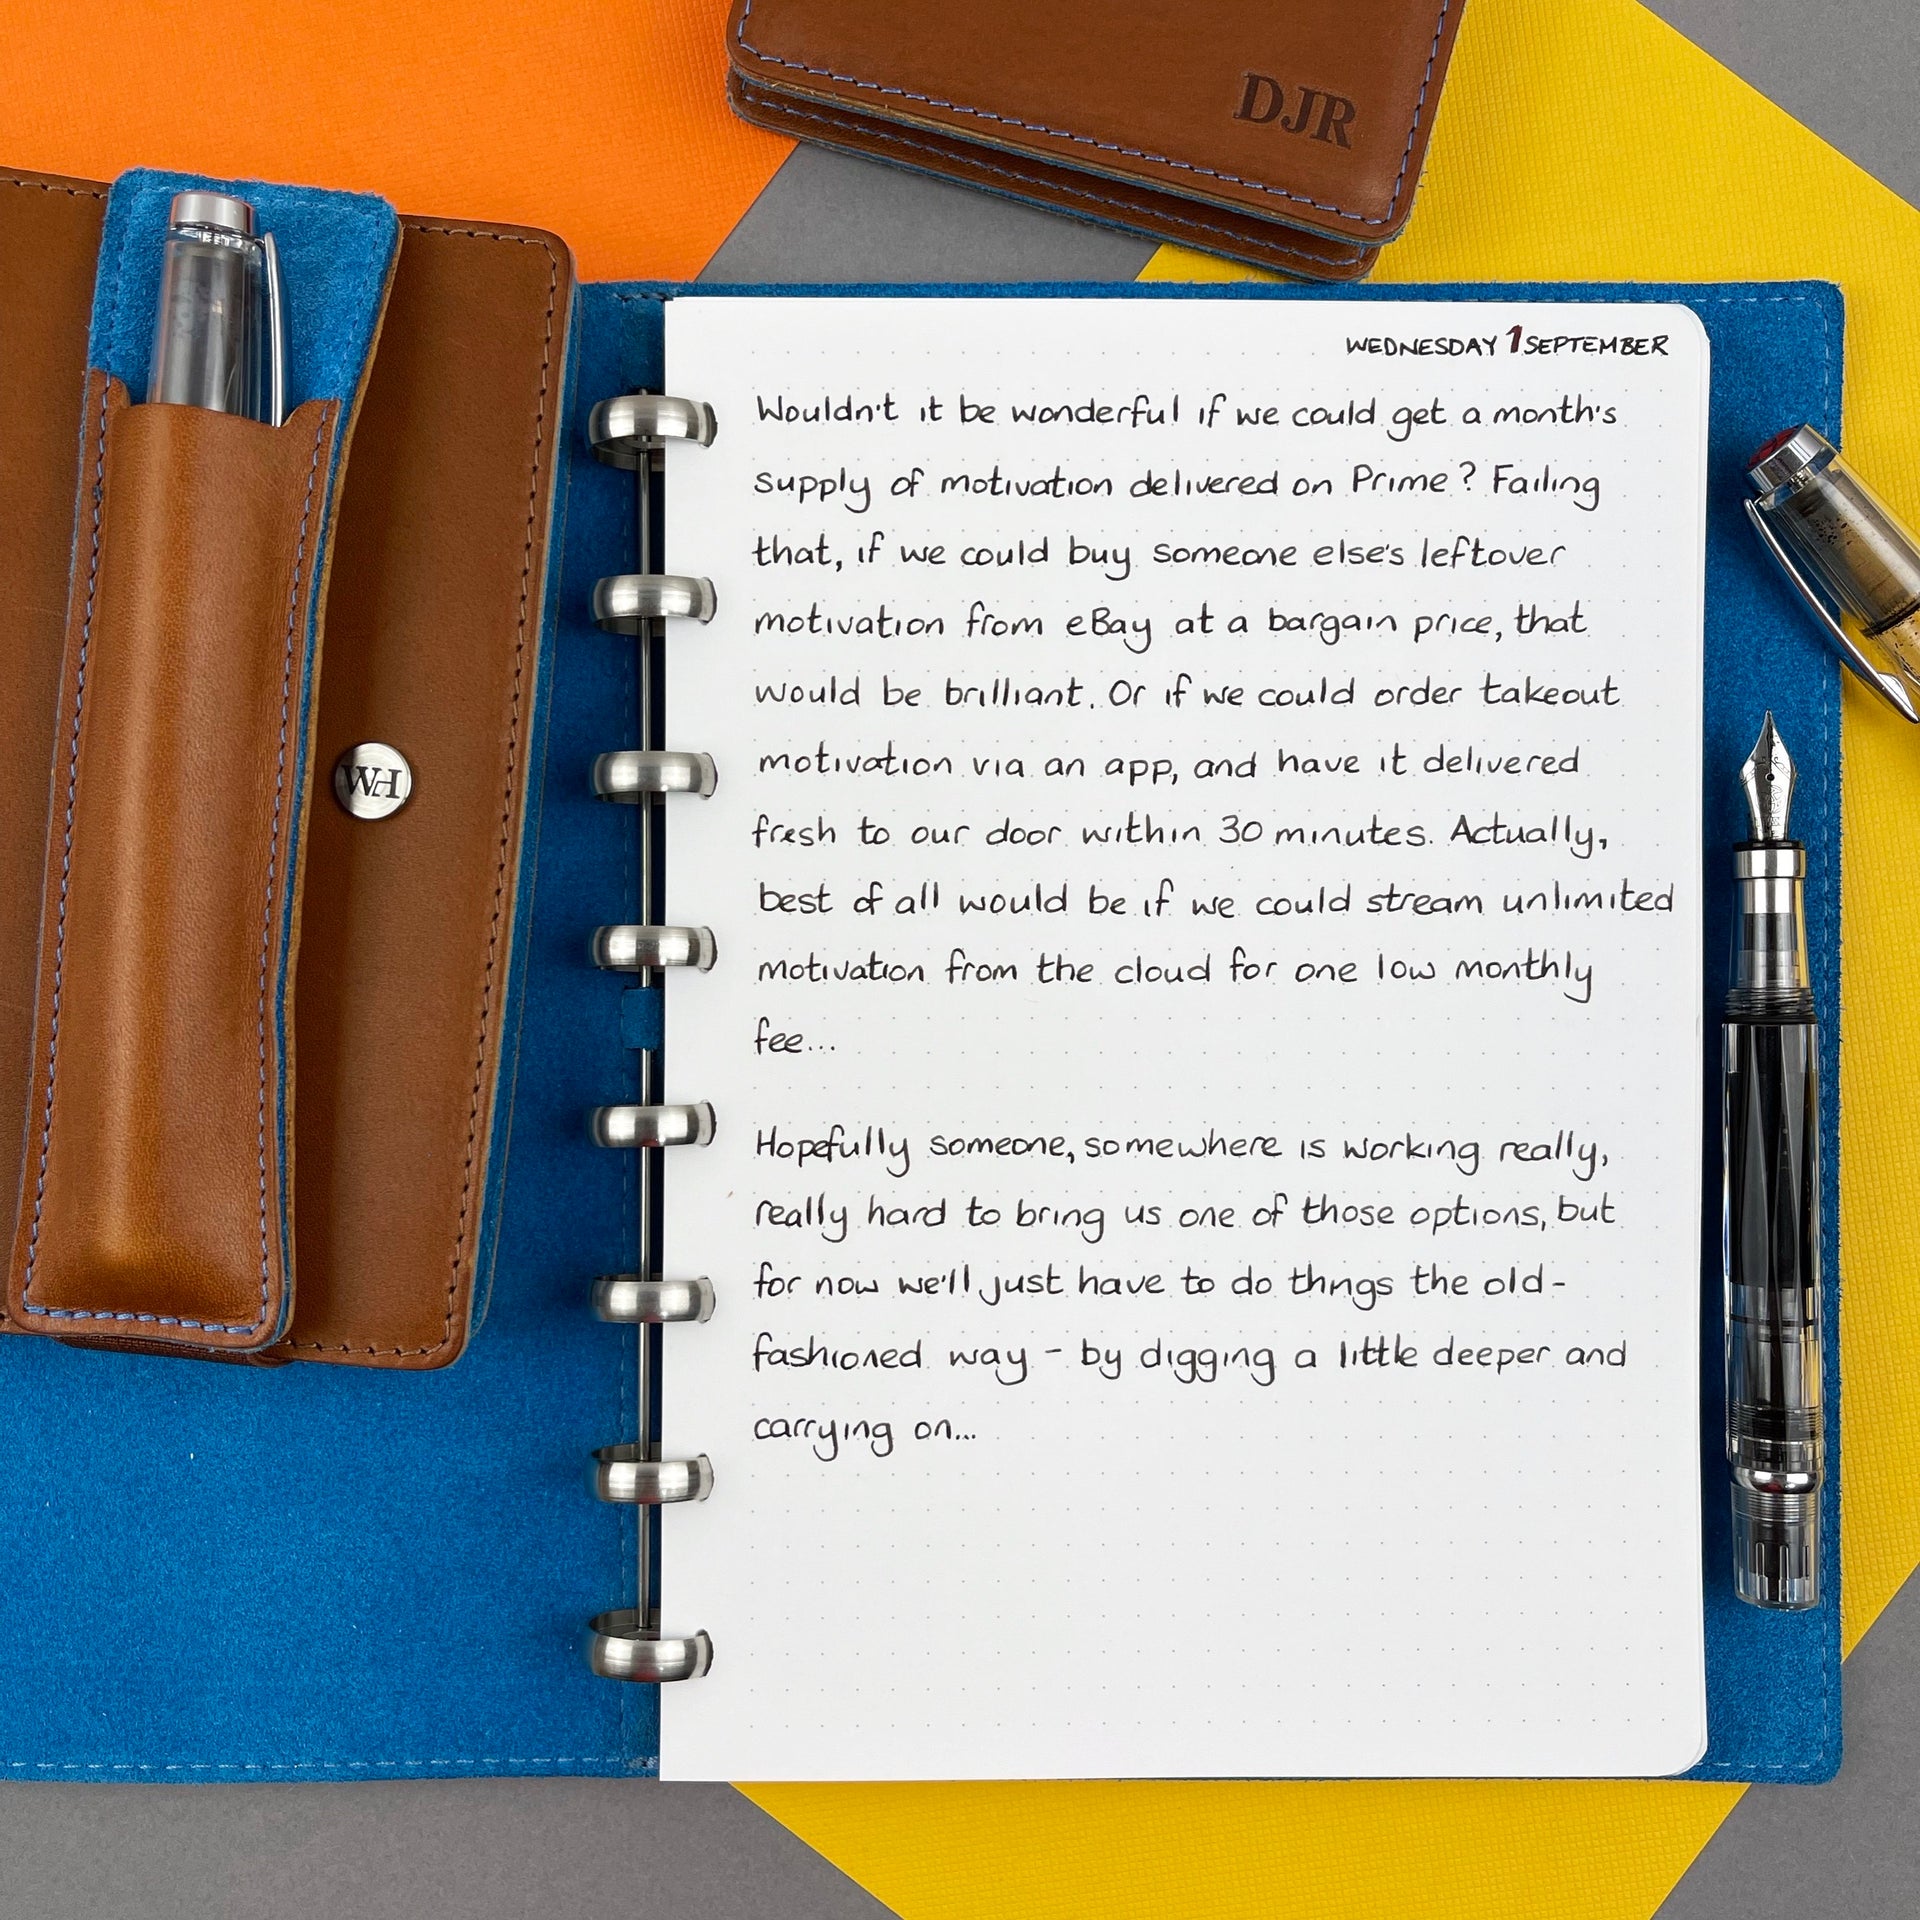 DJR
WH
WEDNESDAY 1 SEPTEMBER
Wouldn't it be wonderful if we could get a month's
supply of motivation delivered on Prime? Failing
that, if we could buy someone else's leftover
motivation from eBay at a bargain price, that
would be brilliant. Or if we could order takeout
motivation via an app, and have it delivered
fresh to our door within 30 minutes. Actually,
best of all would be if we could stream unlimited
motivation from the cloud for one low monthly
fee...
Hopefully someone, somewhere is working really,
really hard to bring us one of those options, but
for now we'll just have to do things the old-
fashioned way - by digging a little deeper and
carrying on...